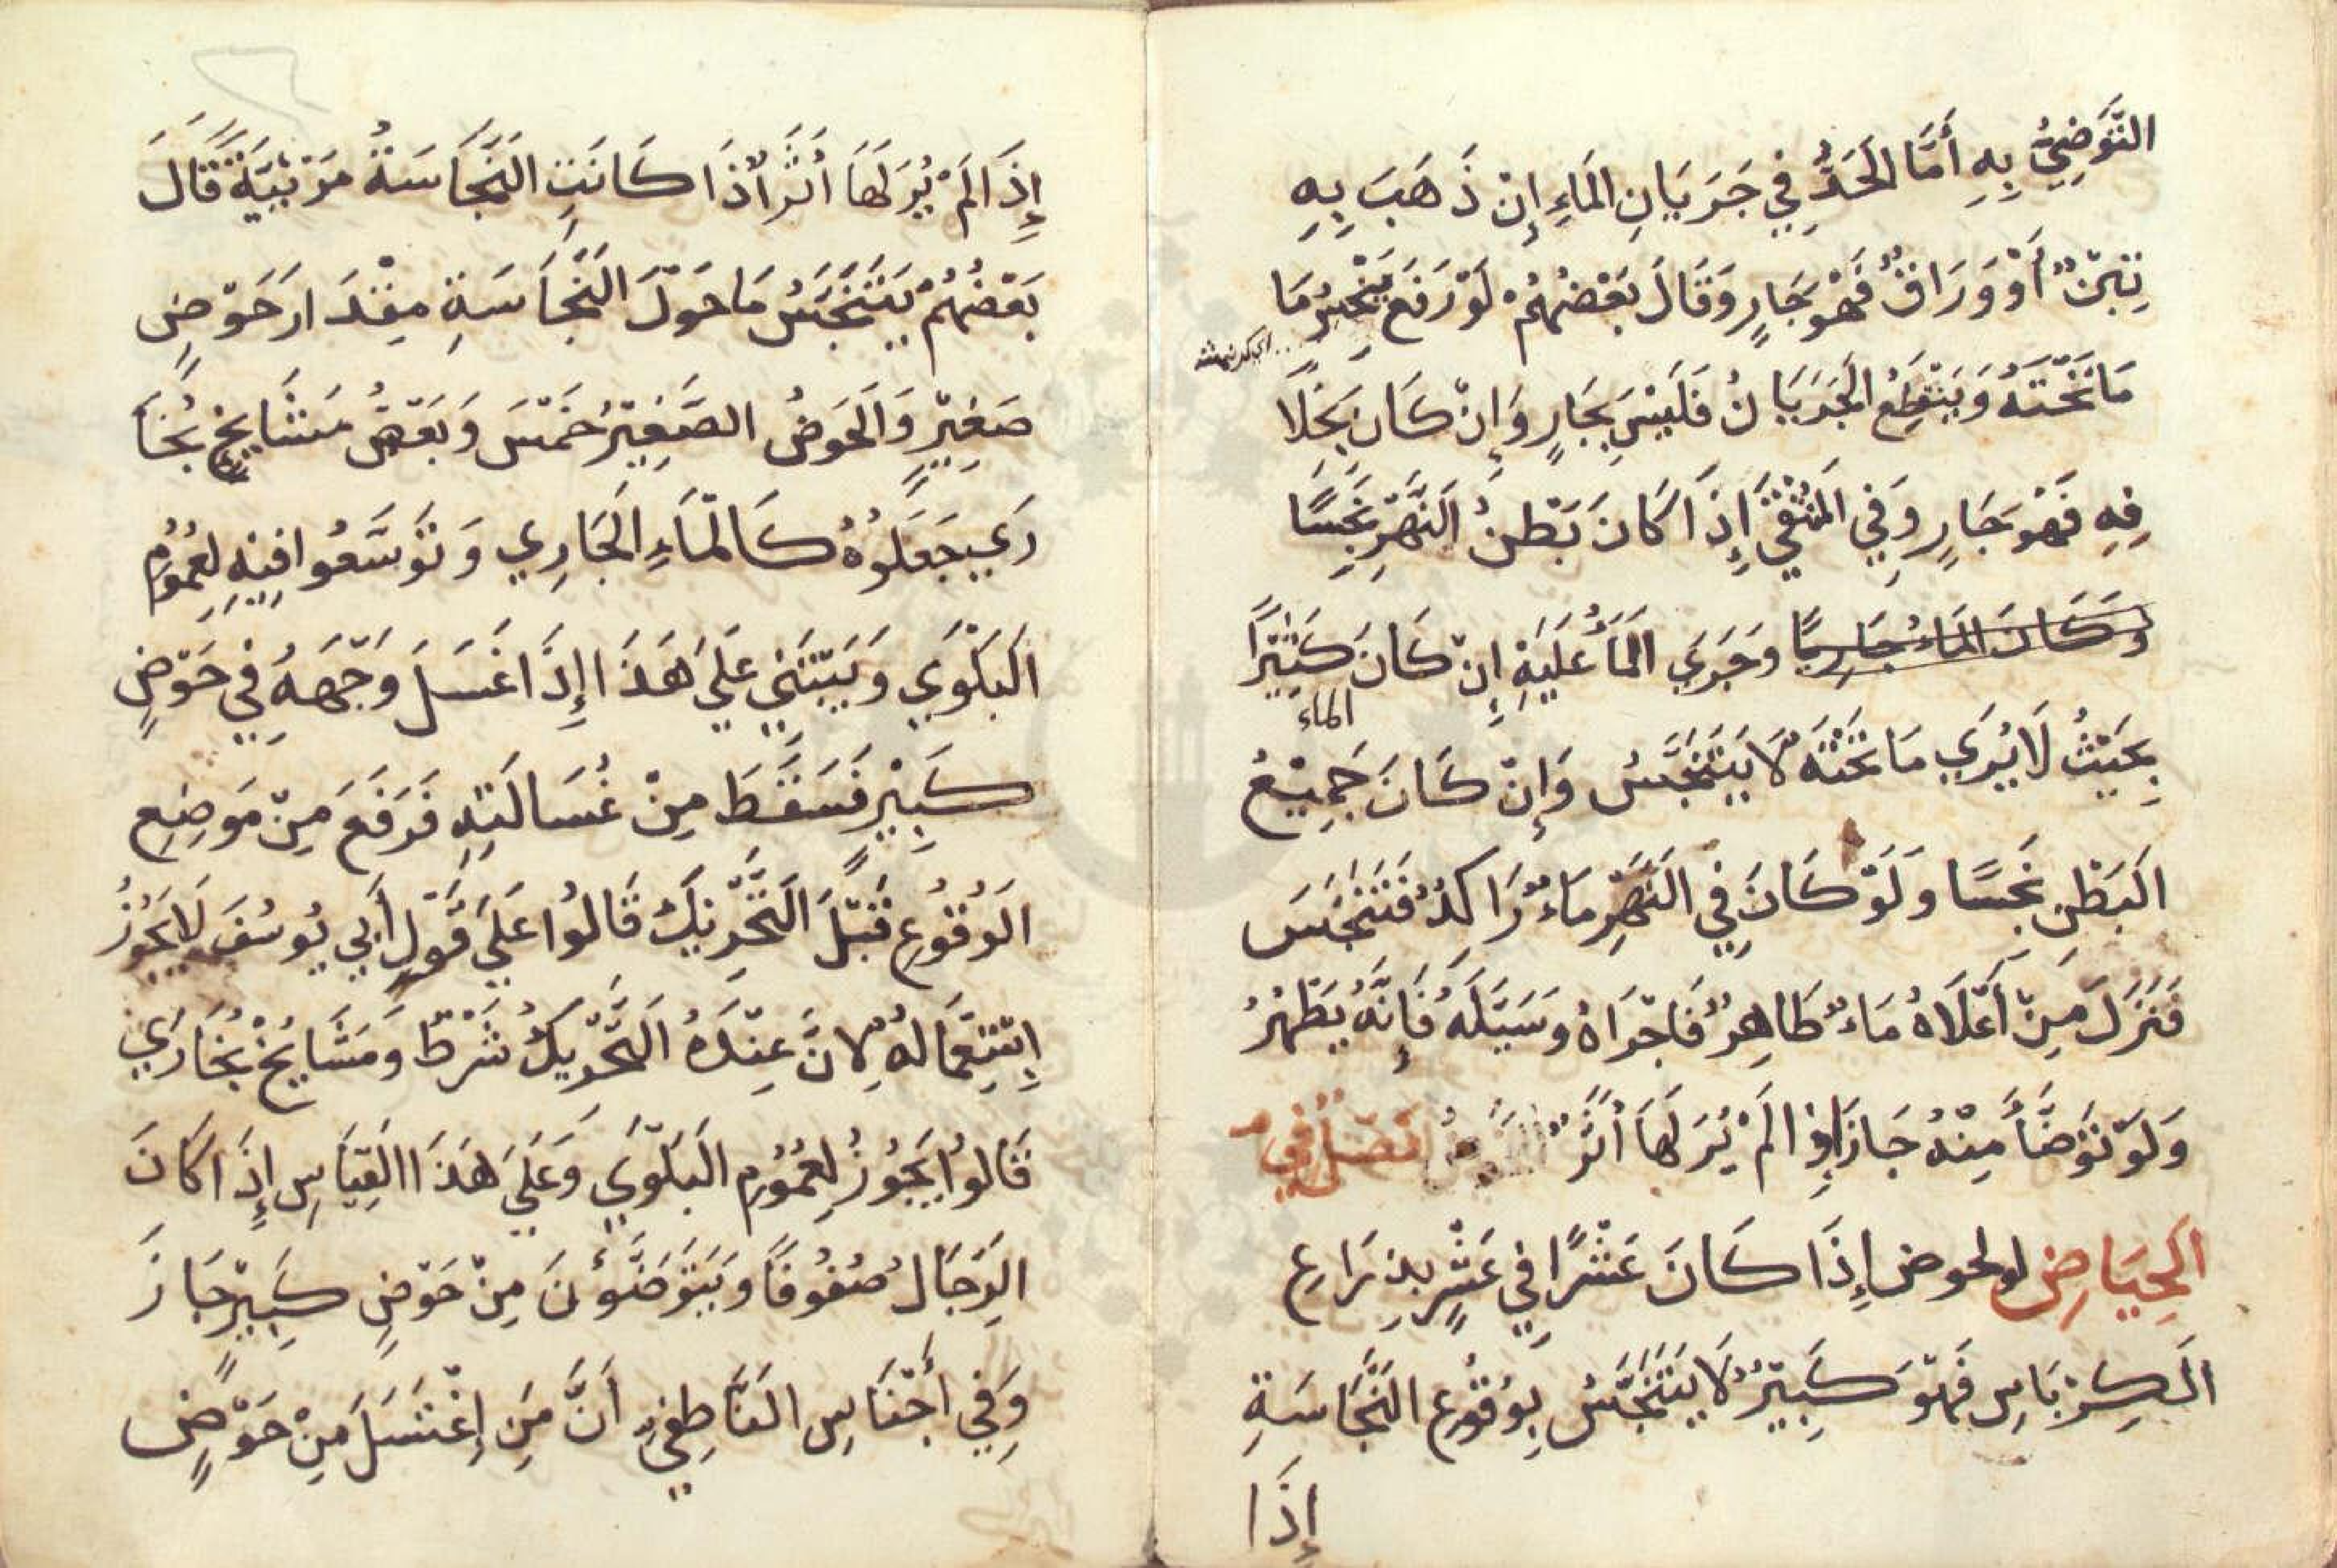 التَّوَضِيُّ بِهِ أَمَّا الحَدُّ فِي جَرَيَانِ المَاءِ إِنْ ذَهَبَ بِهِ
تِبْنٌ أَوْ وَرَاقٌ فَهْوَ جَارٍ وَقَالَ بَعْضُهُمْ لَوْ رَفَعَ يَنْحَسِرُ مَا
مَا تَحْتَهُ وَيَنْقَطِعُ الجَرَيَانُ فَلَيْسَ بِجَارٍ وَإِنْ كَانَ بِخَلَا
فِهِ فَهْوَ جَارٍ وَفِي المُنْتَقَي إِذَا كَانَ بَطْنُ النَّهْرِ نَجِسًا
وَكَانَ المَاءُ جَارِيًا وَجَرَي المَاءُ عَلَيْهِ إِنْ كَانَ كَثِيْرًا
الماء
بِحَيْثُ لَا يُرَي مَا تَحْتَهُ لَا يَتَنَجَّسُ وَإِنْ كَانَ جَمِيْعُ
البَطْنِ نَجِسًا وَلَوْ كَانَ فِي النَّهْرِ مَاءٌ رَاكِدٌ فَتَنَجَّسَ
فَنَزَلَ مِنْ أَعْلَاهُ مَاءٌ طَاهِرٌ فَاجْرَاهُ وَسَيَّلَهُ فَإِنَّهُ يَطْهُرُ
وَلَوْ تَوَضَّأَ مِنْهُ جَازَ إِذَا لَمْ يُرَ لَهَا أَثَرٌ فَصْلٌ فِي
الحِيَاضِ لو لحوض إِذَا كَانَ عَشْرًا فِي عَشْرٍ بِذِرَاعِ
الكِرْبَاسِ فَهْوَ كَبِيْرٌ لَا يَتَنَجَّسُ بِوُقُوْعِ النَّجَاسَةِ
إِذَا
إِذَا لَمْ يُرَ لَهَا أَثَرٌ إِذَا كَانَتِ النَّجَاسَةُ مَرْئِيَّةً قَالَ
بَعْضُهُمْ يَتَنَجَّسُ مَا حَوْلَ النَّجَاسَةِ مِقْدَارَ حَوْضٍ
صَغِيْرٍ وَالحَوْضُ الصَّغِيْرُ خَمْسَ وَبَعْضُ مَشَايِخِ بُخَا
رَي جَعَلُوْهُ كَالمَاءِ الجَارِي وَتَوَسَّعُوا فِيْهِ لِعُمُوْمِ
البَلْوَي وَيَبْتَنِي عَلَي هَذَا إِذَا غَسَلَ وَجْهَهُ فِي حَوْضٍ
كَبِيْرٍ فَسَقَطَ مِنْ غُسَالَتِهِ فَرَفَعَ مِنْ مَوْضِعِ
الوُقُوْعِ قَبْلَ التَّحْرِيْكِ قَالُوا عَلَي قَوْلِ أَبِي يُوسُفَ لَا يَجُوْزُ
إِسْتِعْمَالُهُ لِانَّ عِنْدَهُ التَّحْرِيكُ شَرْطٌ وَمَشَايِخُ بُخَارَي
قَالُوا يَجُوْزُ لِعُمُوْمِ البَلْوَي وَعَلَي هَذَا القِيَاسِ إِذَا كَانَ
الرِجَالُ صُفُوْفًا وَيَتَوَضَّؤُنَ مِنْ حَوْضٍ كَبِيْرٍ جَازَ
وَفِي أَجْنَاسِ النَّاطِفِيِ أَنَّ مَنِ إِغْتَسَلَ مِنْ حَوْضٍ